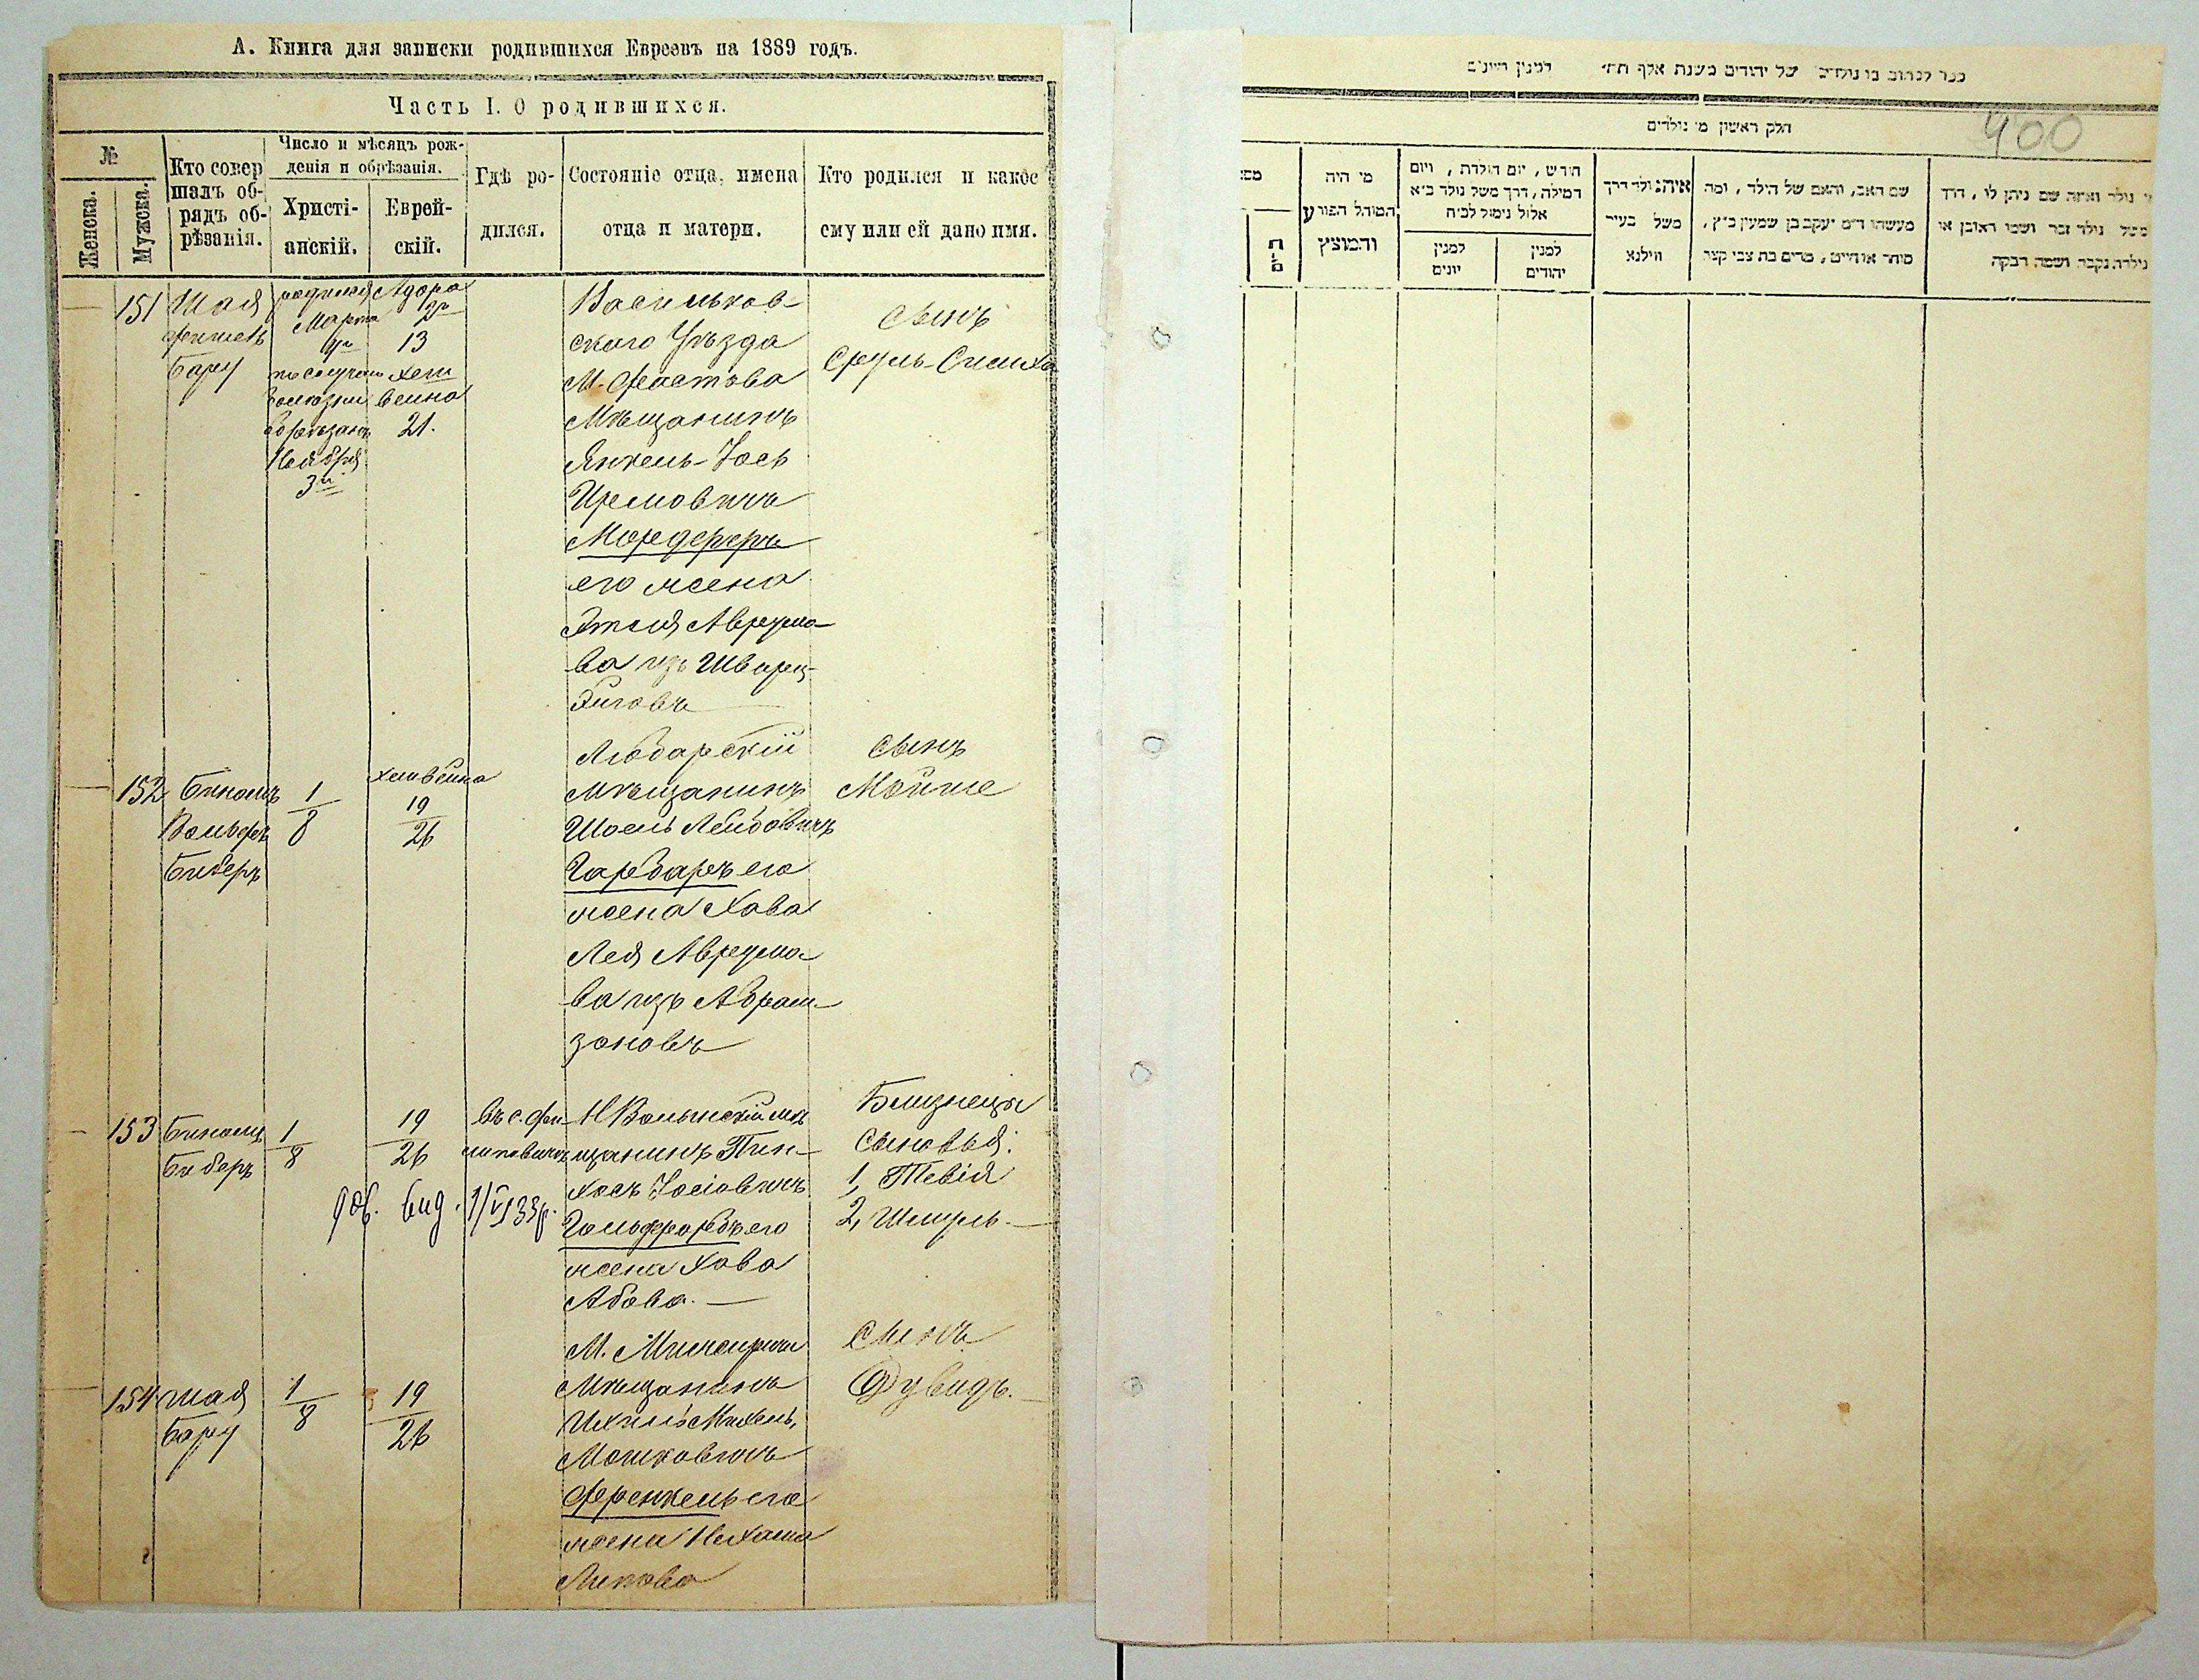 А. Книга для записки родившихся Евреевъ на 1889 годъ.
Часть I. О родившихся.
№
Женска.
Мужска.
Кто совер
шалъ об-
рядъ об-
рѣзанія.
Число и мѣсяцъ рож-
денія и обрѣзанія.
Христі-
анскій.
Еврей-
скій.
Гдѣ ро-
дился.
Состояніе отца, имена
отца и матери.
Кто родился и какое
ему или ей дано имя.
151
Шая
Фишель
Бару
родился
Марта
по случаю
болезни
обрезанъ
Ноября
3го
Адора
13
Хеш
вейна
21.
Васильков-
ского Уѣзда
М. Фастова
Мѣщанинъ
Янкель-Іось
Мордферъ
его жена
Этля Аврумо-
ва изъ Шварц-
сынъ
Сруль-Симха
152
Биномъ
Вольфъ
Биберъ
1
8
Хешвейна
19
26
Любарскій
мѣщанинъ
Шоель Лейбовичъ
Гарбаръ его
жена Хава
Лея Аврумо
ва изъ Абрам-
зоновъ
сынъ
Мойше
153
Биномъ
Биберъ
1
8
19
26
въ с. Фи-
липовичъ
Н Волынскій мѣ
щанинъ Пин-
хосъ Іосіовичъ
Гольдфарбъ его
жена Хава
Абова.
Близнецы
сыновья:
1, Тевія
2, Шмуль.
выд. 1/VI 33 г.
154
Шая
Бару
1
8
19
26
М.
Мѣщанинъ
Ихиль Михель,
Мошковичъ
Френкель его
жена Нехама
Липова
сынъ
Дувидъ.
ספר לכתוב בו נולדים של יהודים בשנת אלף תת״ למנין היונים
400
חלק ראשון מן נולדים
מי היה
המוהל הפורע
והמוצץ
חודש, יום הולדת, ויום
המילה, דרך משל נולד כ״א
אלול נימול לכ״ח
למנין
יונים
למנין
יהודים
איה נולד דרך
משל בעיר
ווילנא
שם האב, והאם של הילד, ומה
מעשהו ד״מ יעקב בן שמעון כ״ץ,
סוחר או חייט, מרים בת צבי קצר
נולד ואיזה שם ניתן לו, דרך
משל נולד זכר ושמו ראובן או
נולדה נקבה ושמה רבקה